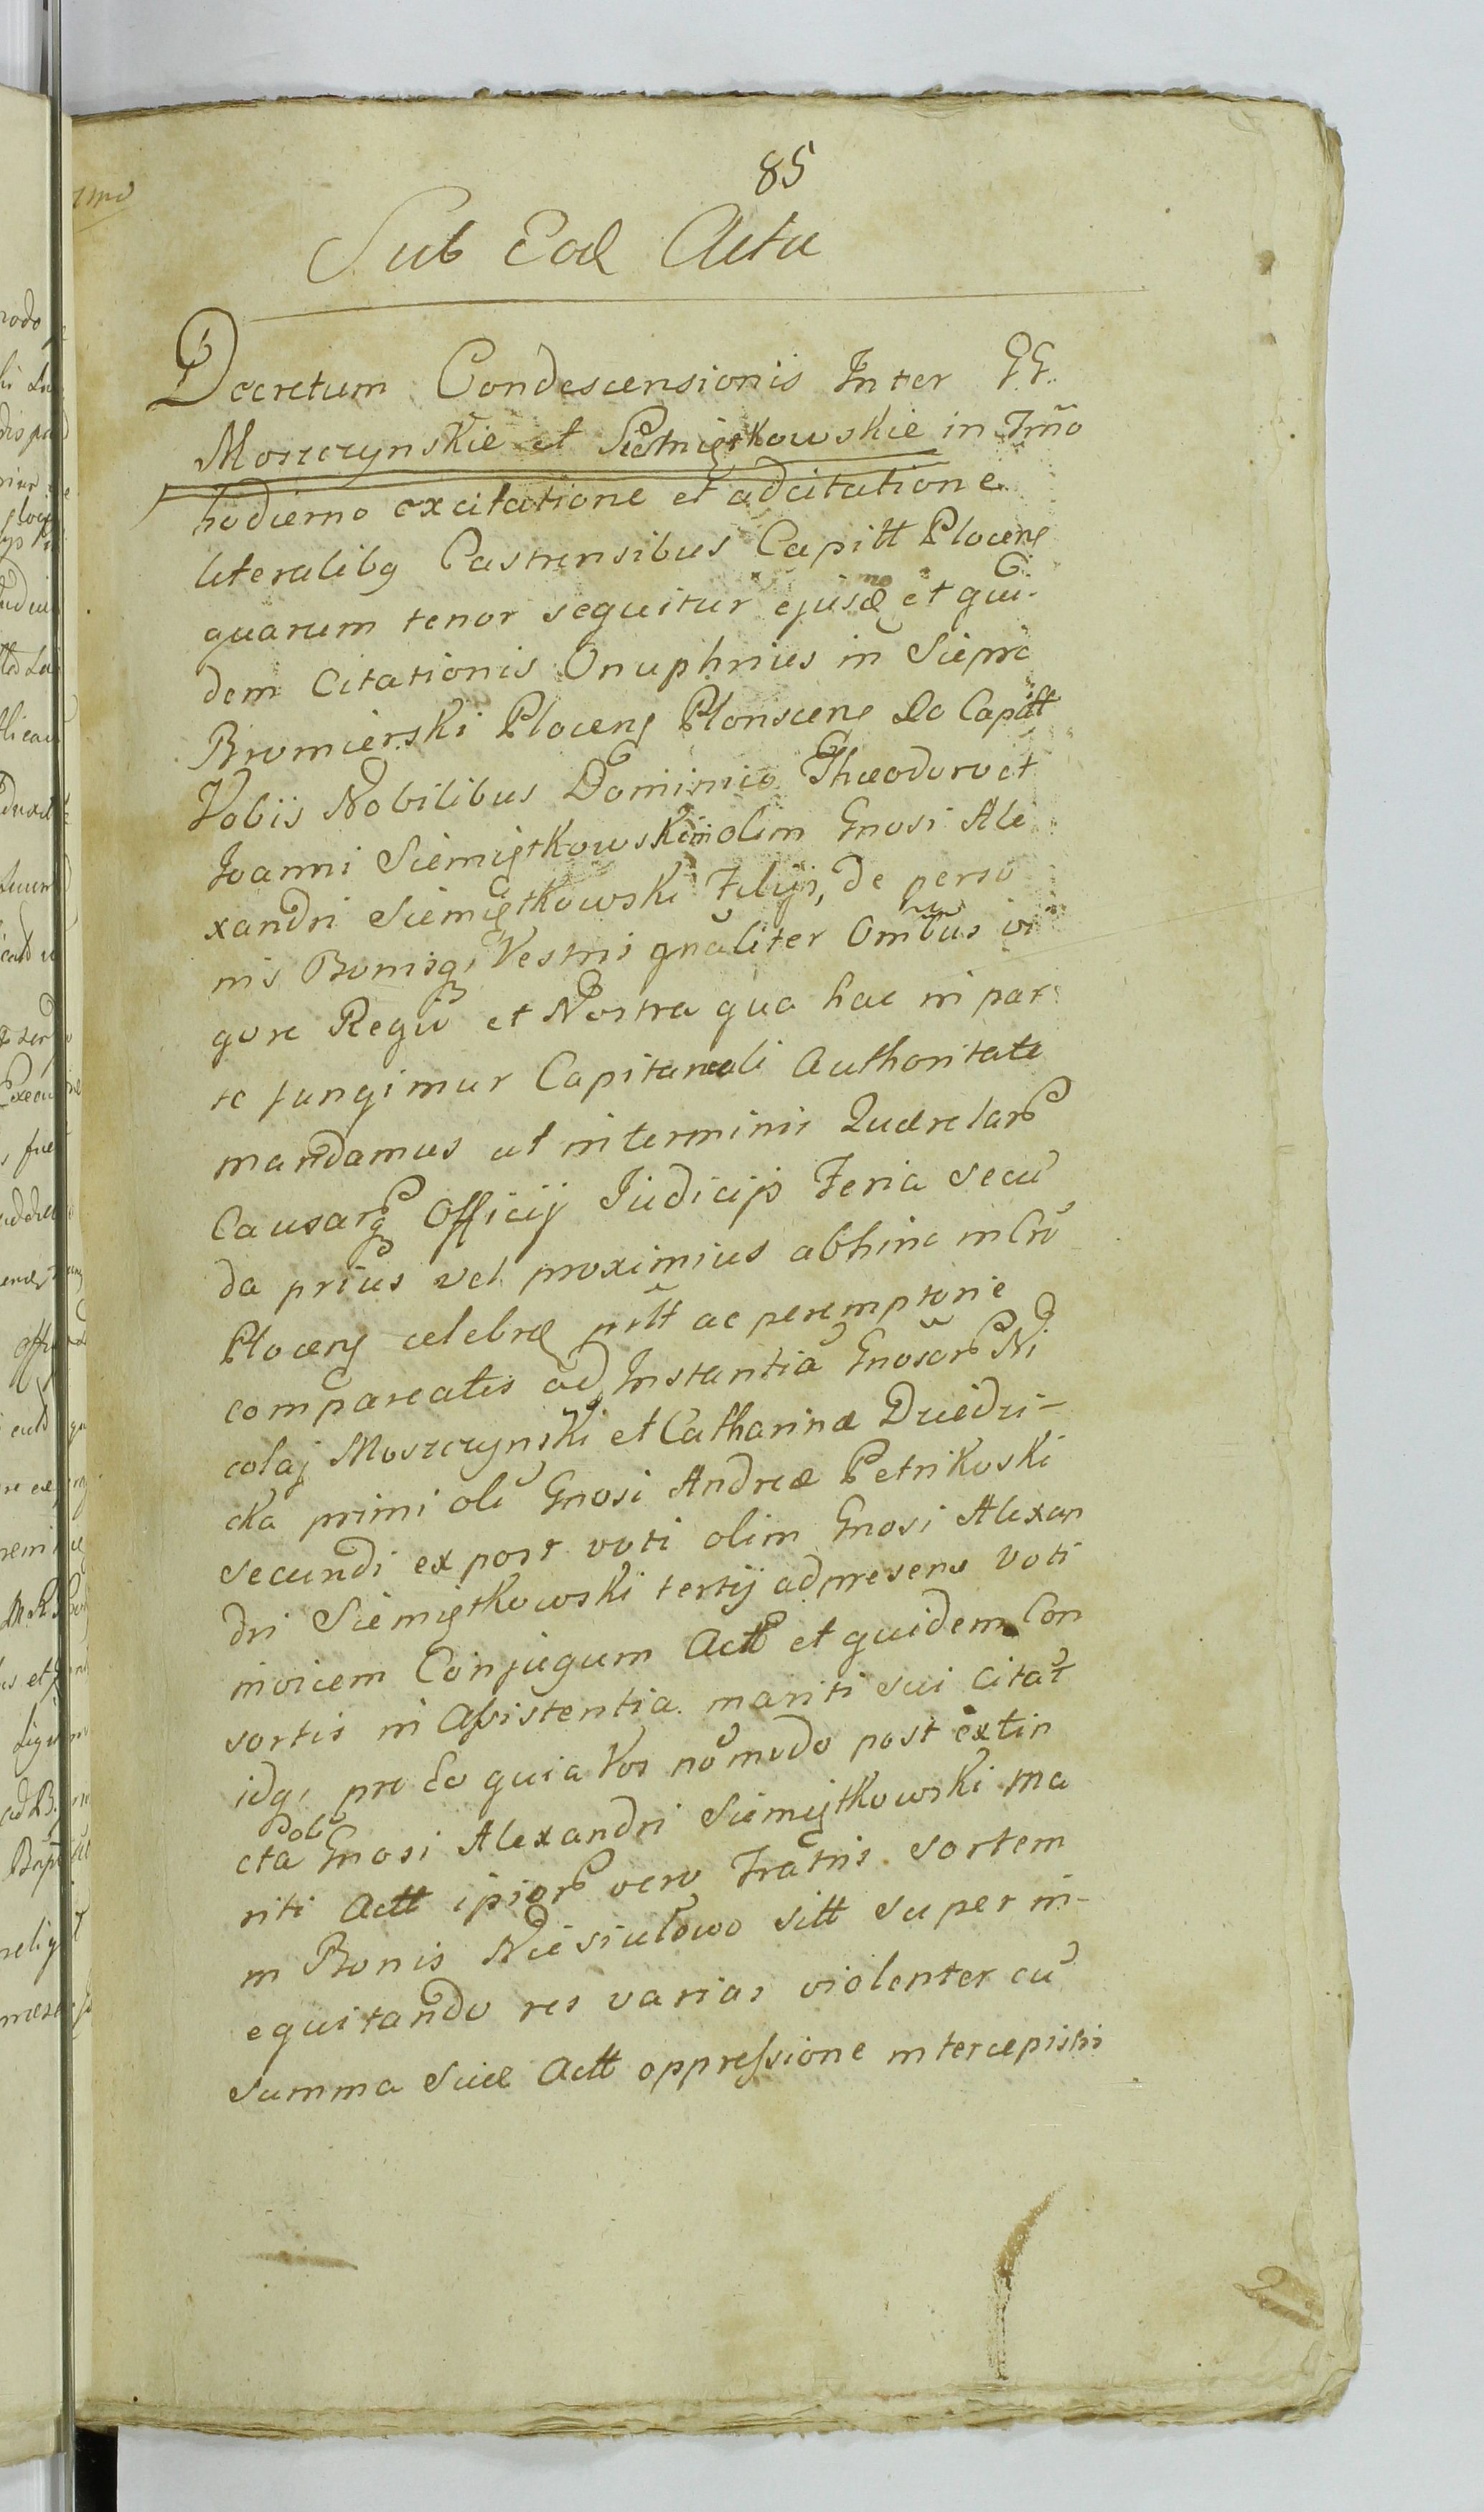 85
Sub Eod Actu
Decretum Condescensionis Inter GG.
Moszczynskie et Siemiętkowskie in Tmo
hodierno excitatione et adcitatione
literalibq Castrensibus Capitt Ploceng
quarum tenor sequitur ejusd et qui-
dem Citationis Onuphrius in Sieprc
Bromierski Ploceng Plonsceng Lo Capitt
Vobis Nobilibus Dominico Theodoro et
Joanni Siemiętkowskim olim Gnosi Ale
xandri Siemiętkowski Filijs, de perso
nis Bonisq, Vestris gnaliter Ombus vi
gore Regiu et Nostra qua hac in par
te fungimur Capitaneali Authoritate
mandamus ut in terminis Quærelar
Causarq Officij Judicijs Feria Secu
da prius vel proximius abhinc in Cro
Ploceng celebrd prltt ac peremptorie
compareatis ad Instantia Gnosor Ni
colaj Moszczynski et Catharinæ Dziedzi-
cka primi oli Gnosi Andreæ Petrikoski
secundi ex post voti olim Gnosi Alexan
dri Siemiętkowski tertij ad presens voti
invicem Conjugum Act et quidem Con
sortis in Assistentia mariti sui Citat
idq, pro Eo quia Vos no modo post extin
cta oli Gnosi Alexandri Siemiętkowski ma
riti Actt ipsior vero Fratris sortem
in Bonis Niesiulowo sitt super in-
equitando res varias violenter cu
summa Suæ Actt oppressione intercepistis